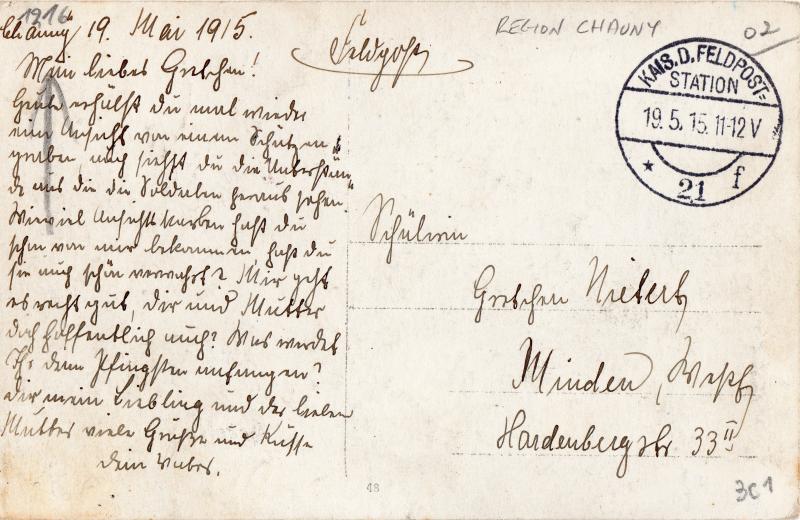 1216
Chauny 19. Mai 1915.
Feldpost
REGION CHAUNY
02
Mein liebes Gretchen!
Heute erhälst du mal wieder
eine Ansicht von einem Schützen
graben auch siehst du die Unterstän
de aus die die Soldaten heraus sehen.
Wieviel Ansichtskarten hast du
schon von mir bekommen, hast du
sie auch schön verwahrt? Mir geht
es recht gut, dir und Mutter
doch hoffentlich auch? Was werdet
Ihr denn Pfingsten anfangen?
Dir mein Liebling und der lieben
Mutter viele Grüße und Küsse
dein Vater.
KAIS. D. FELDPOST=
STATION
19.5.15.11-12 V
* 21 f
Schülerin
Gretchen
Minden, Westf
Hardenbergstr 33 II
48
3C1